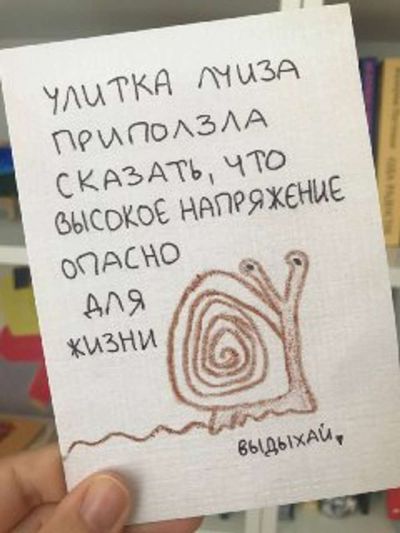 УЛИТКА ЛУИЗА
ПРИПОЛЗЛА
СКАЗАТЬ, ЧТО
ВЫСОКОЕ НАПРЯЖЕНИЕ
ОПАСНО
ДЛЯ
ЖИЗНИ
ВЫДЫХАЙ